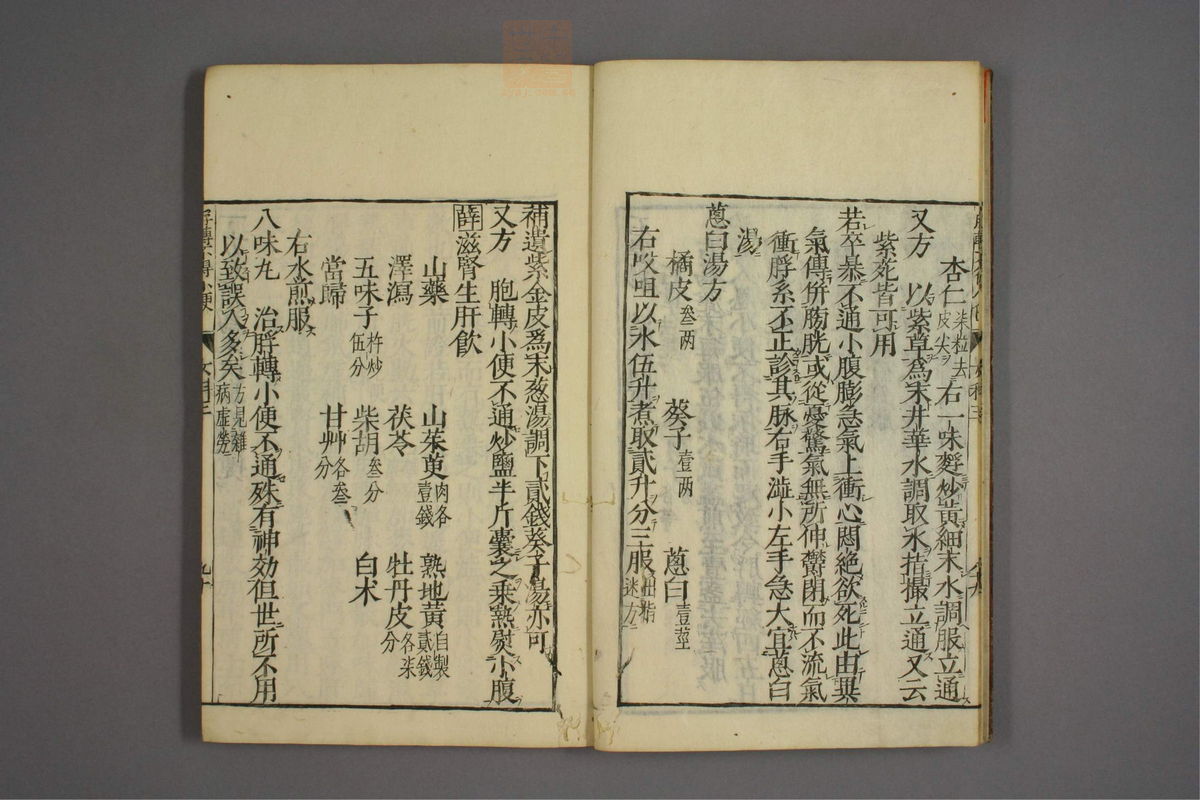 杏仁柒粒去皮尖右一味麩炒黃細末水調服立通
又方 以紫草爲末井華水調取水指撮立通又云
紫菀皆可用
若卒暴不通小腹膨急氣上衝心悶絕欲死此由異
氣傳併膀胱或從憂驚氣無所伸鬱閉而不流氣
衝脬系不正診其脉右手澁小左手急大宜蔥白
湯
蔥白湯方
橘皮叁两 葵子壹两 蔥白壹莖
右㕮咀以水伍升煮取貳升分三服
補遺紫金皮爲末葱湯調下貳錢葵子湯亦可
又方 胞轉小便不通炒鹽半斤囊之乘熱熨小腹
薛滋腎生肝飲
山藥 山茱萸肉各壹錢 熟地黃自製貳錢
澤瀉 茯苓 牡丹皮各柒分
五味子杵炒伍分 柴胡叁分 白术
當歸 甘艸各叁分
右水煎服
八味丸 治脬轉小便不通殊有神効但世所不用
以致誤人多矣方見雜病虛勞